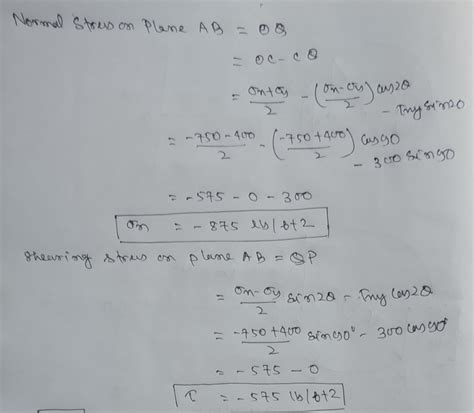 Normal Stress on Plane AB = OQ
= OC - CQ
= (σn+σy)/2 - ((σn-σy)/2) cos2θ - τny sin20
= (-750-400)/2 - ((-750+400)/2) cos90 - 300 sin90
= -575 - 0 - 300
σn = -875 lb/ft2
Shearing stress on plane AB = QP
= (σn-σy)/2 sin2θ - τny cos2θ
= (-750+400)/2 sin90° - 300 cos90°
= -575 - 0
τ = -575 lb/ft2